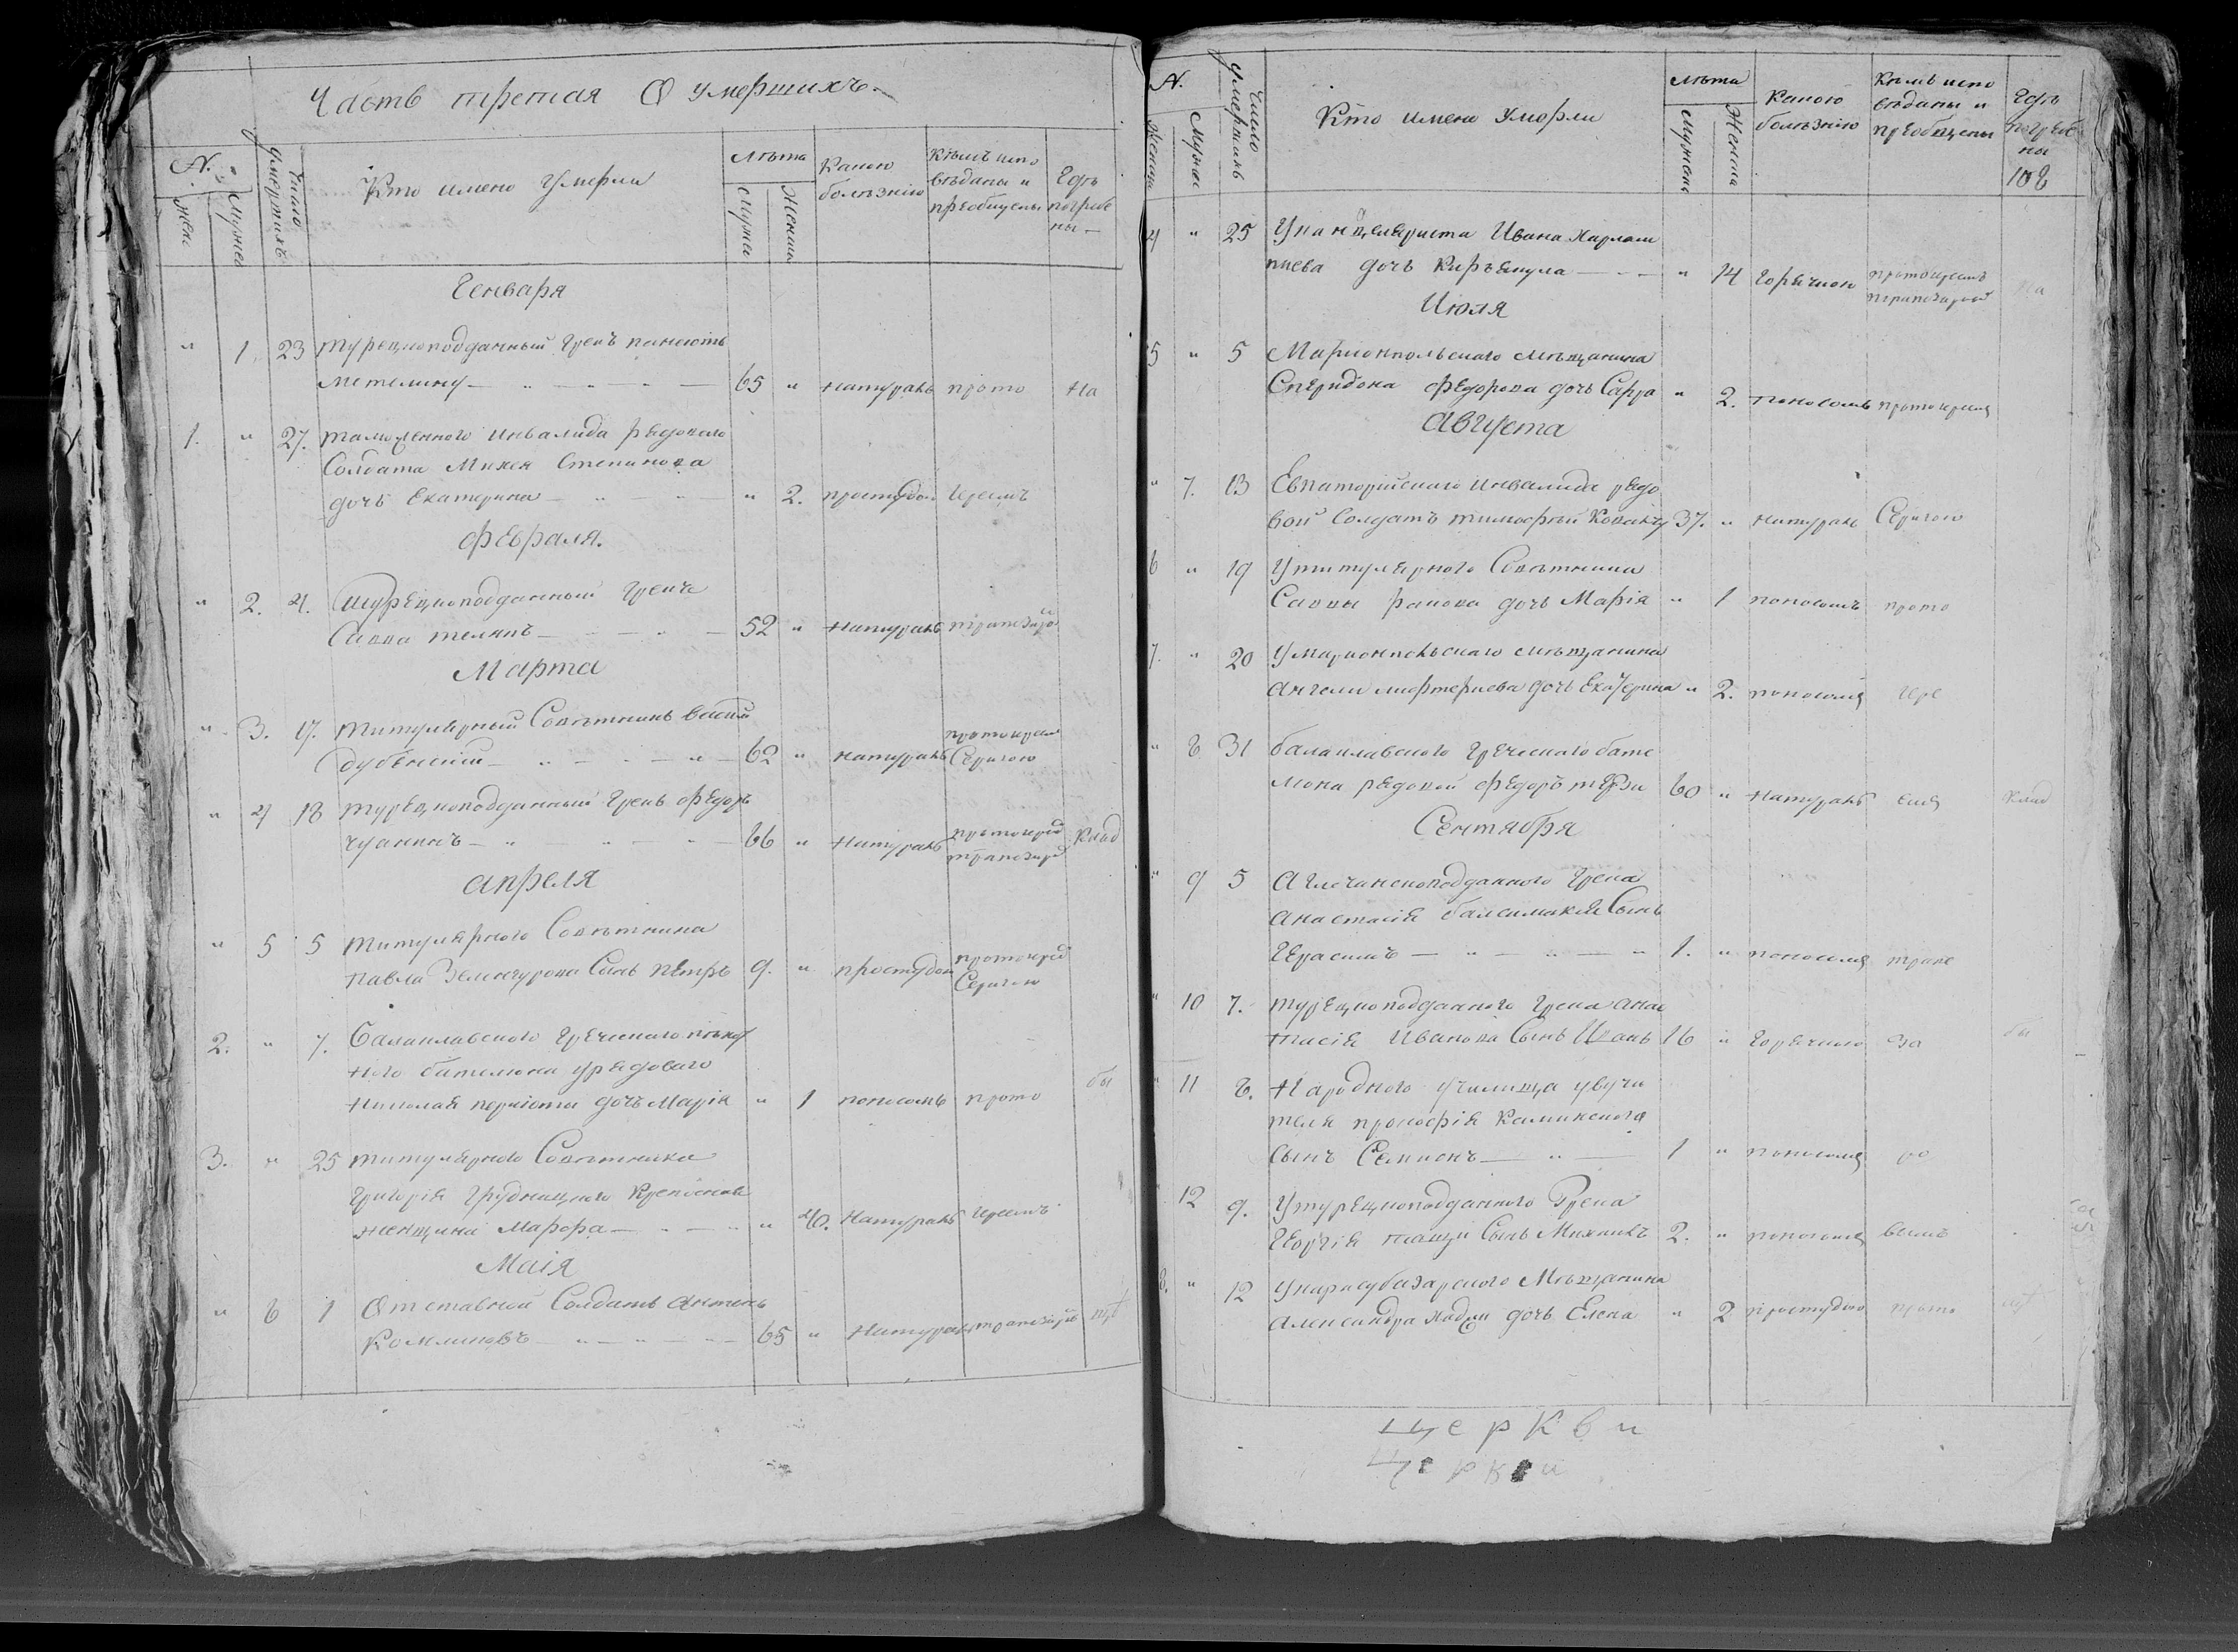 Часть третая О умершихъ
№.
Жен.
Мужес
Число умершихъ
Кто имено умерли
Лѣта
Мужес
Женски
Какою болѣзнію
Кѣмъ испо
вѣданы и
преобщены
Гдѣ
погребе
ны
Генваря
" 1. 23 турецкоподданный грекъ
65 " натурал прото на
1. " 27. таможенного инвалида редового
Солдата Михея Степанова
дочь Екатерина " 2. простудою Іереемъ
февраля.
" 2. 4. турецкоподданный грекъ
Савва 52 " натурал трапезир
Марта
" 3. 17. титулярный Совѣтникъ
Дубенскій 62 " натурал протоиреем
Серигою
" 4 18 турецкоподданный грекъ федоръ
66 " натурал протоирей
трапезир клад
апреля
" 5 5 титулярного Совѣтника
Павла Сынъ Петръ 9. " простудою протоирей
Серигою
2. " 7. балаклавского греческого пѣхот
ного баталиона у редоваго
Николая дочь Марія " 1 поносомъ прото бы
3. " 25 титулярного Совѣтника
Григорія крепосная
женщина Марфа " 40. натурал Іереемъ
Маія
" 6 1 Отставной Солдатъ Антонъ
65 " натурал трапезир щѣ
№.
Женски
Мужес
Число умершихъ
Кто имено умерли
Лѣта
Мужеск
Женски
Какою
болѣзнію
Кѣмъ испо
вѣданы и
преобщены
Гдѣ
погребе
ны
108
4 " 25 У канцеляриста Ивана Харлам
пиева дочь " 14 горячкою протоиреемъ
трапезиром на
Июля
5 " 5 Мариопольского мѣщанина
Спиридона федорова дочь Сарра " 2. поносомъ протоирея
Августа
" 7. 13 Евпаторийского инвалида редо
вой Солдатъ тимофѣй 37. " натурал Сригою
6 " 19 У титулярного Совѣтника
Саввы дочь Марія " 1 поносомъ прото
7. " 20 У мариопольского мѣщанина
дочь Екатерина " 2. поносомъ іере
" 8 31 балаклавского греческого бата
лиона редовой федоръ 60 " натурал емъ клад
Сентября
" 9 5 Агличанскоподданного грека
Анастасія Сынъ
Герасимъ 1. " поносомъ трапе
" 10 7. турецкоподданного грека Анас
тасія Иванова Сынъ Иванъ 16 " горячкою за бы
" 11 8. Народного училища у учи
теля прокофія Каминского
Сынъ Семионъ 1 " поносомъ ро
" 12 9. У турецкоподданного Грека
Георгія Сынъ Михаилъ 2. " поносомъ вымъ
8. " 12 У карасубазарского Мѣщанина
Александра дочь Елена " 2 простудою прото щѣ
Церкви
Церкви